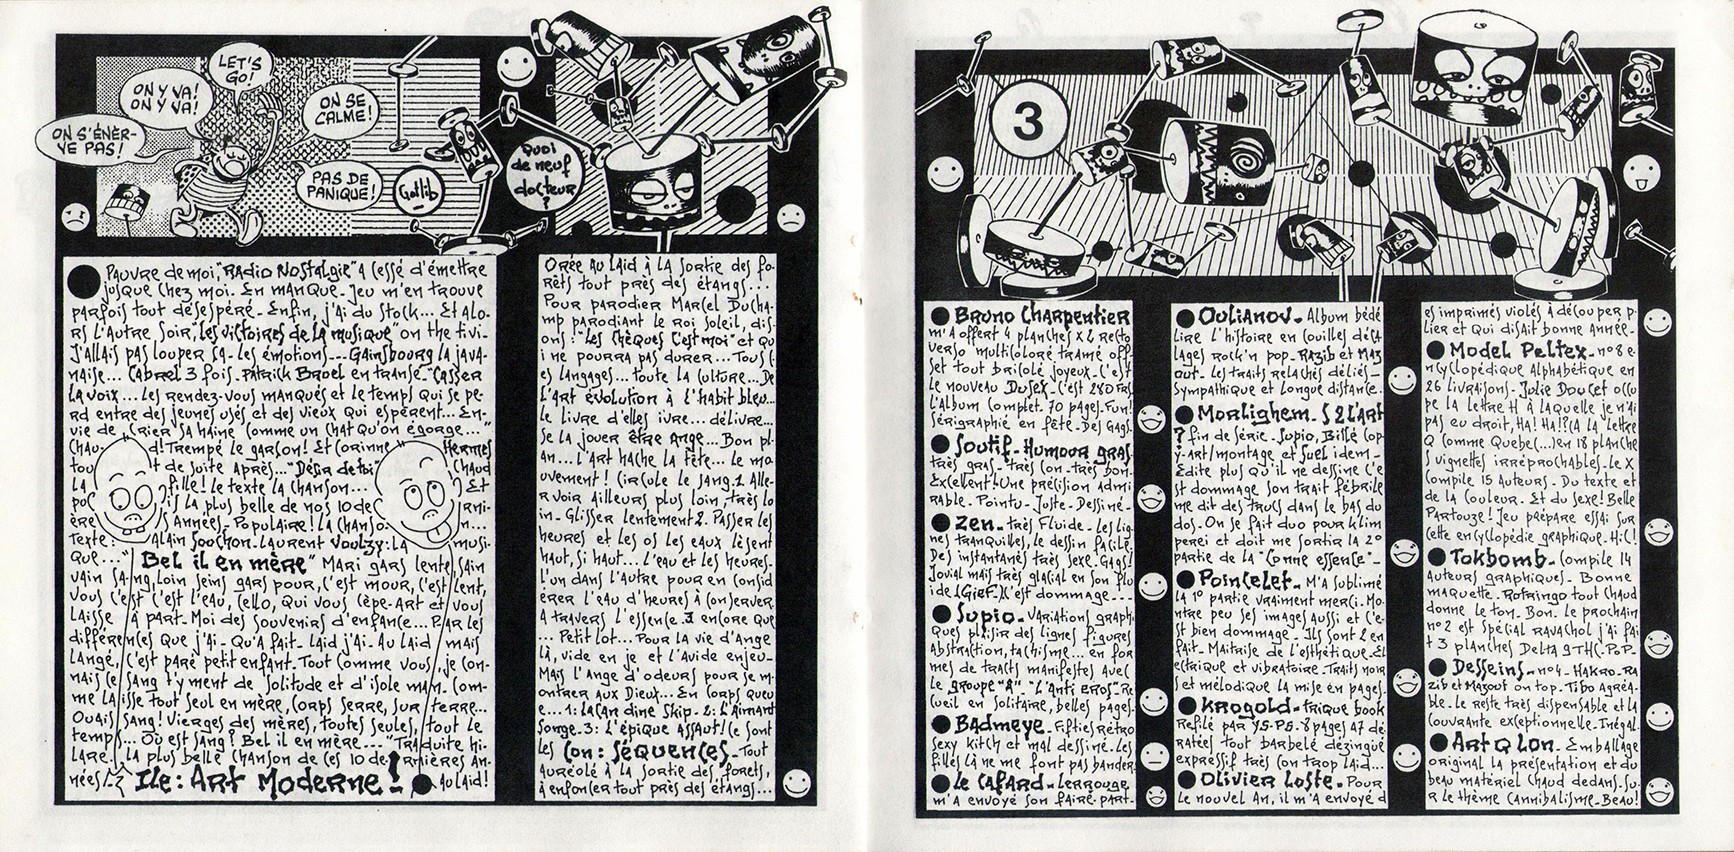 LET'S
GO!
ON Y VA!
ON Y VA!
ON SE
CALME!
ON S'ÉNÈR-
VE PAS!
PAS DE
PANIQUE!
Gotlib
Quoi
de neuf
docteur
?
Pauvre de moi, "Radio Nostalgie" a cessé d'émettre
jusque chez moi. En manque. Jeu m'en trouve
parfois tout désespéré. Enfin, j'ai du stock... Et alo-
rs l'autre soir, "les victoires de la musique" on the tivi.
J'allais pas louper sa. les émotions... Gainsbourg la java-
naise... Cabrel 3 fois. Patrick Bruel en transe. "Casser
la voix... les rendez-vous manqués et le temps qui se pe-
rd entre des jeunes usés et des vieux qui espèrent... En-
vie de crier sa haine comme un chat qu'on égorge..."
Chau d! Trempé le garson! Et Corinne Hermès
tou t de suite après... "Désir de toi Chaud
la fille! Le texte la chanson... Et
po is la plus belle de nos 10 de rni-
ère s années. Populaire! la chanso n...
Texte: Alain Souchon. Laurent Voulzy: la musi-
que... "Bel il en mère" Mari gars lente, sain
vain sang, loin seins gars pour, c'est mour, c'est lent,
vous c'est c'est l'eau, cello, Qui vous cèpe-Art et vous
laisse à part. Moi des souvenirs d'enfance... Par les
différences que j'ai. Qu'a fait. laid j'ai. Au laid mais
langé, c'est paré petit enfant. Tout comme vous, je con-
nais ce sang t'y ment de solitude et d'isole man. Com-
me laisse tout seul en mère, corps serre, sur terre...
Ouais sang! Vierges des mères, toutes seules, tout le
temps. Où est sang? Bel il en mère... "Traduite hi-
lare. la plus belle chanson de ces 10 dernières an-
nées!
Ile: Art Moderne! Au laid!
Orée au laid à la sortie des fo-
rêts tout près des étangs...
Pour parodier Marcel Ducha-
mp parodiant le roi soleil, dis-
ons: "les chèques c'est moi" et qu
i ne pourra pas durer... Tous l
es langages... toute la culture... De
l'art évolution à l'habit bleu...
le livre d'elles ivre... délivre...
Se la jouer être ange... Bon pl-
an... l'art hache la tête... le mo
uvement! Circule le sang. 1 Alle
r voir ailleurs plus loin. très lo
in. Glisser lentement 2. Passer les
heures et les os les eaux lèsent
haut, si haut... l'eau et les heures.
l'un dans l'autre pour en consid
érer l'eau d'heures à conserver.
A travers l'essence. 3 encore que
... Petit lot... Pour la vie d'Ange
là, vide en je et l'avide enjeu.
Mais l'ange d'odeurs pour se m-
ontrer aux Dieux... En corps queu
e... 1: Lacan dine Skip. 2: L'Aimant
Songe. 3: L'épique Assaut! Ce sont
les Con: Séquences. Tout
auréolé à la sortie des forets,
à enfoncer tout près des étangs...
3
Bruno Charpentier
m'a offert 4 planches X 2 recto
verso multicoloré tramé off-
set tout bricolé joyeux. C'est
le nouveau Dusex. C'est 280 Frs
l'album complet. 70 pages. Fun!
Sérigraphie en fête. Des gags.
Soutif. Humour gras
très gras. très con. très bon.
Excellent! Une précision admi
rable. Pointu. Juste. Dessiné.
Zen. très Fluide. les lig
nes tranquilles, le dessin facile.
Des instantanés très sexe. Gags!
Jovial mais très glacial en son flu
ide (Gief.) C'est dommage...
Supio. Variations graphi
ques plaisir des lignes figures
Abstraction, tachisme... en for
mes de tracts manifestes avec
le groupe "A" "l'anti eros". Re
cueil en solitaire, belles pages.
Badmeye. Fifties rétro
sexy kitch et mal dessiné. Les
filles là ne me font pas bander.
le Cafard. Lerrouge
m'a envoyé son faire-part.
Oulianov. Album bédé
Lire l'histoire en couilles décа
lages rock'n pop. Razib et Maz
out. Les traits relachés déliés.
Sympathique et longue distance.
Morlighem. S 2 l'art
? fin de série. Supio, Billé cop
y-art/montage et suel idem.
Edite plus qu'il ne dessine c'e
st dommage son trait fébrile
me dit des trucs dans le bas du
dos. On se fait duo pour Klim
perei et doit me sortir la 2°
partie de la "Conne essence".
Poincelet. M'a sublimé
la 1° partie vraiment merci. Mo
ntre peu ses images aussi et c'e
st bien dommage. Ils sont 2 en
fait. Maitrise de l'esthétique. El
ectrique et vibratoire. Traits noir
s et mélodique la mise en pages.
Krogold. Frique book
Refilé par Y5.P6. 8 pages A7 dé
ratées tout barbelé dézingué
expressif très con trop laid...
Olivier Loste. Pour
le nouvel An, il m'a envoyé d
es imprimés violés à découper p-
lier et qui disait bonne année.
Model Peltex. n°8 e-
ncyclopédique Alphabétique en
26 livraisons. Jolie Doucet occu
pe la lettre H à laquelle je n'ai
pas eu droit, HA! HA!?(A la lettre
Q comme Québec...) en 18 planche
s vignettes irréprochables. Le X
compile 15 auteurs. Du texte et
de la couleur. Et du sexe! Belle
Partouze! Jeu prépare essai sur
cette encyclopédie graphique. Hic!
Tokbomb. Compile 14
auteurs graphiques. Bonne
maquette. Rotringo tout chaud
donne le ton. Bon. le prochain
n°2 est spécial Ravachol j'ai fai
t 3 planches Delta 9 THC. Pop.
Desseins. n°4. Hakro. Ra
zib et Mazout on top. Tibo agréa-
ble. le reste très dispensable et la
couvrante exceptionnelle. Inégal.
Art Q Lon. Emballage
original la présentation et du
beau matériel chaud dedans. Su-
r le thème Cannibalisme. Beau!